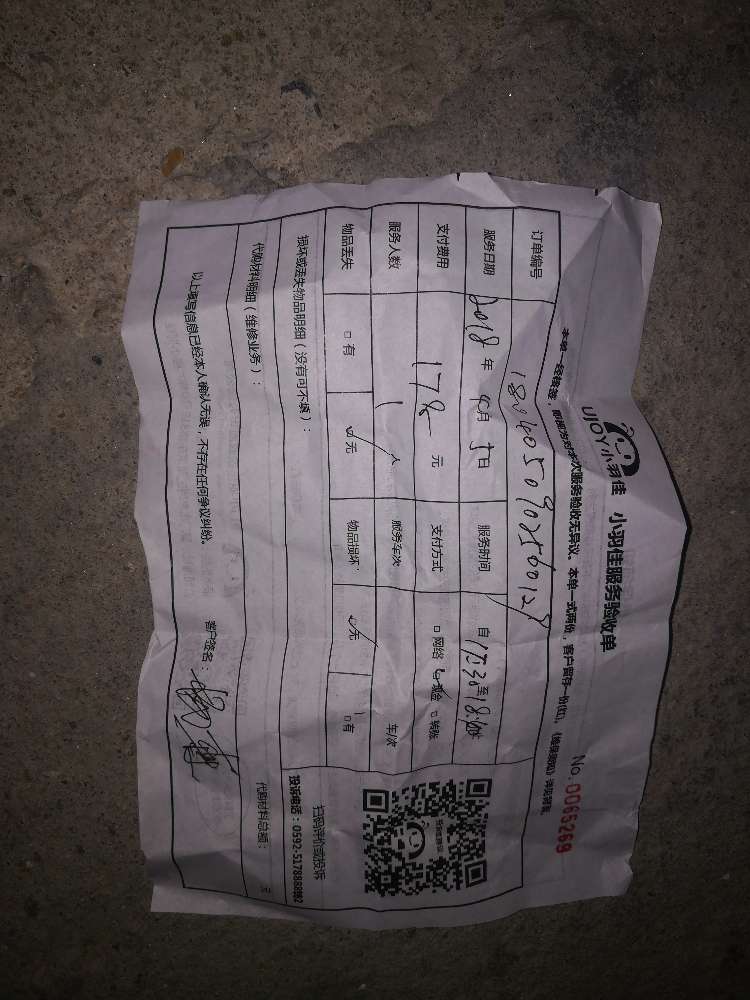 UJOY小羽佳 小羽佳服务验收单
No. 0065269
本单一经接签，即视为对本次服务验收无异议。本单一式两份，客户留存一份(红)，
订单编号
服务日期 2018年 10月 5日 服务时间 自17:30至
支付费用 178 元 支付方式 □网络 ☑现金 □转账
服务人数 1人 服务车次 车/次
物品丢失 □有 ☑无 物品损坏: ☑无 □有
损坏或丢失物品明细（没有可不填）：
扫码评价或投诉
投诉电话：0592-5178888转2
代购材料明细（维修业务）： 代购材料总额： 元
以上填写信息已经本人确认无误，不存在任何争议纠纷。 客户签名：